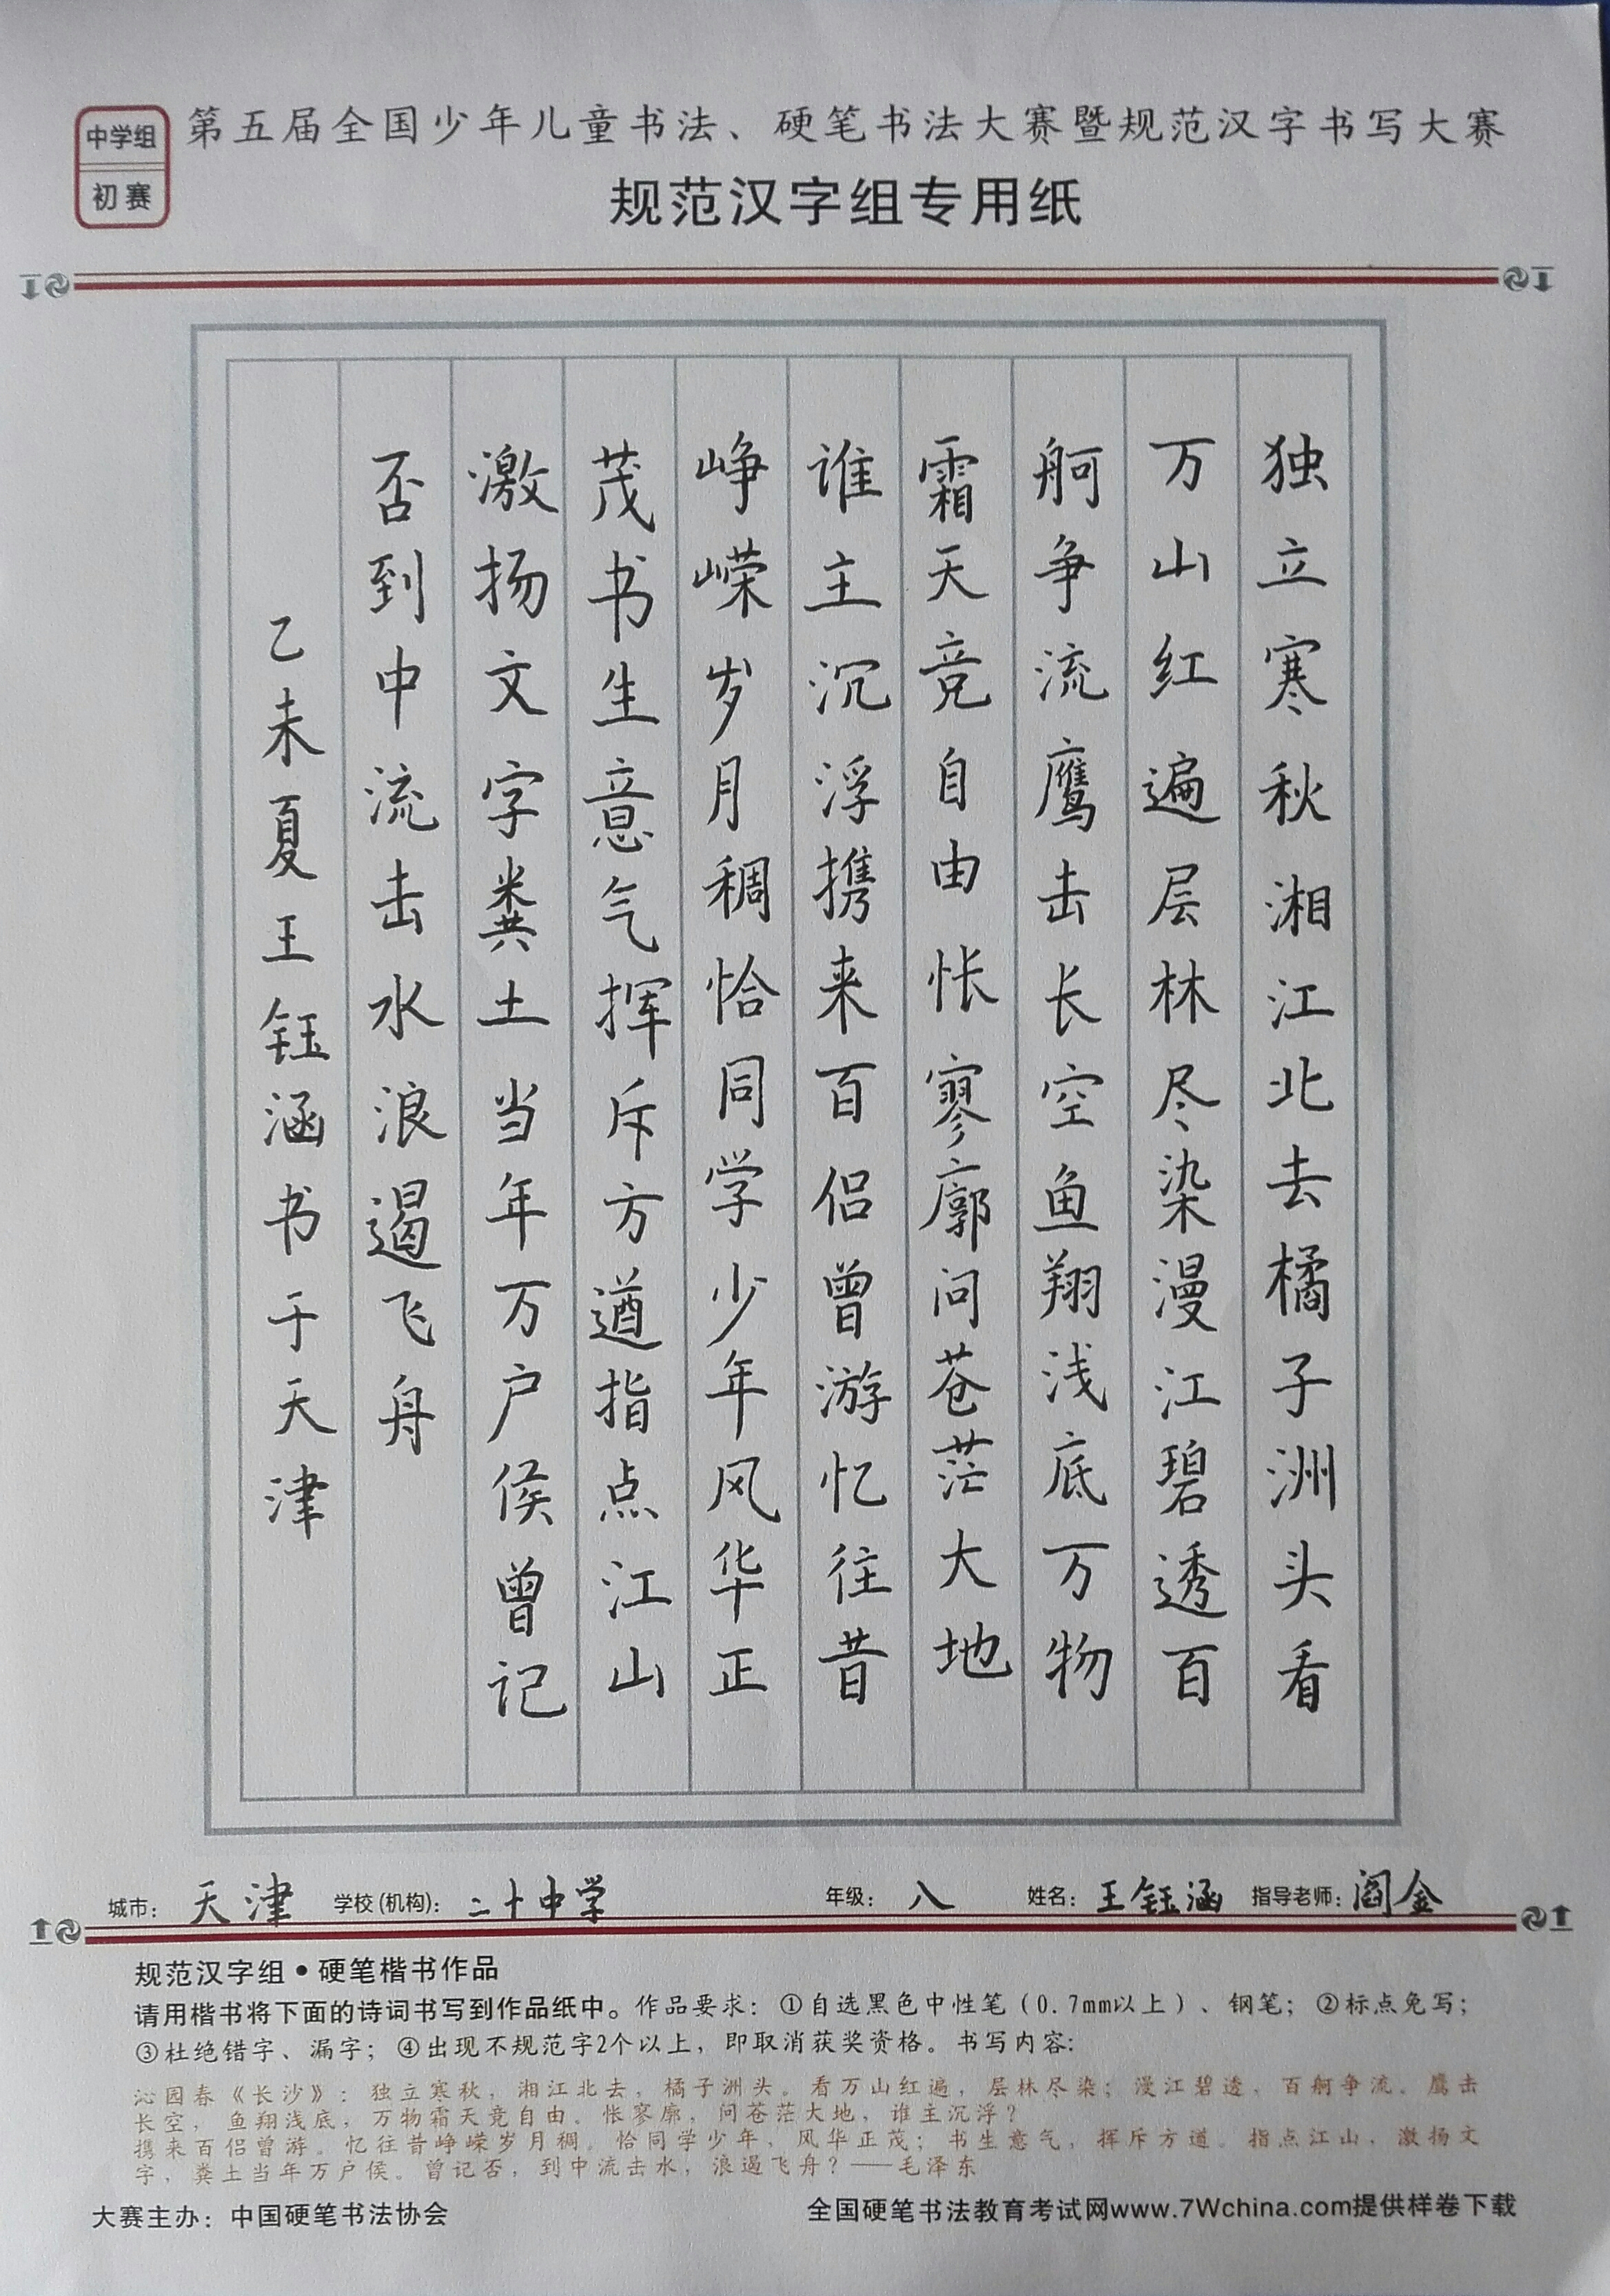 中学组
初赛
第五届全国少年儿童书法、硬笔书法大赛暨规范汉字书写大赛
规范汉字组专用纸
独立寒秋湘江北去橘子洲头看
万山红遍层林尽染漫江碧透百
舸争流鹰击长空鱼翔浅底万物
霜天竞自由怅寥廓问苍茫大地
谁主沉浮携来百侣曾游忆往昔
峥嵘岁月稠恰同学少年风华正
茂书生意气挥斥方遒指点江山
激扬文字粪土当年万户侯曾记
否到中流击水浪遏飞舟
乙未夏王钰涵书于天津
城市：天津 学校(机构)：二十中学 年级：八 姓名：王钰涵 指导老师：阎金
规范汉字组•硬笔楷书作品
请用楷书将下面的诗词书写到作品纸中。作品要求：①自选黑色中性笔（0.7mm以上）、钢笔；②标点免写；
③杜绝错字、漏字；④出现不规范字2个以上，即取消获奖资格。书写内容：
沁园春《长沙》：独立寒秋，湘江北去，橘子洲头。看万山红遍，层林尽染；漫江碧透，百舸争流。鹰击
长空，鱼翔浅底，万物霜天竞自由。怅寥廓，问苍茫大地，谁主沉浮？
携来百侣曾游。忆往昔峥嵘岁月稠。恰同学少年，风华正茂；书生意气，挥斥方遒。指点江山，激扬文
字，粪土当年万户侯。曾记否，到中流击水，浪遏飞舟？——毛泽东
大赛主办：中国硬笔书法协会
全国硬笔书法教育考试网www.7Wchina.com提供样卷下载